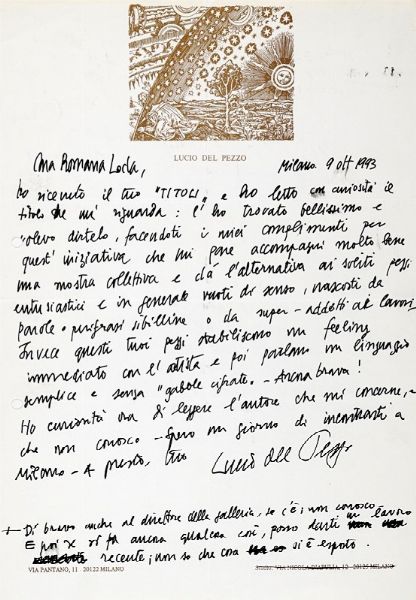 LUCIO DEL PEZZO
Cara Romana Loda,
Milano. 9 ott 1993
ho ricevuto il tuo "TITOLI" e ho letto con curiosità il
che mi riguarda: l'ho trovato bellissimo e
volevo dirtelo, facendoti i miei complimenti per
quest'iniziativa che mi pare accompagni molto bene
una mostra collettiva e dà l'alternativa ai soliti pezzi
entusiastici e in generale vuoti di senso, nascosti da
parole o sibilline o da super-addetti ai lavori
Invece questi tuoi pezzi stabiliscono un feeling
immediato con l'artista e poi parlano un linguaggio
semplice e senza "gabole cifrate. - Ancora brava!
Ho curiosità ora di leggere l'autore che mi concerne, e
che non conosco - Spero un giorno di incontrarti a
Milano - A presto, tuo
Lucio del Pezzo
+ Di bravo anche al direttore della galleria, se c'è; non conosco
E poi x si fa ancora qualcosa così, posso darti un lavoro
recente; non so che cosa si è esposto.
VIA PANTANO, 11 - 20122 MILANO
20125 MILANO